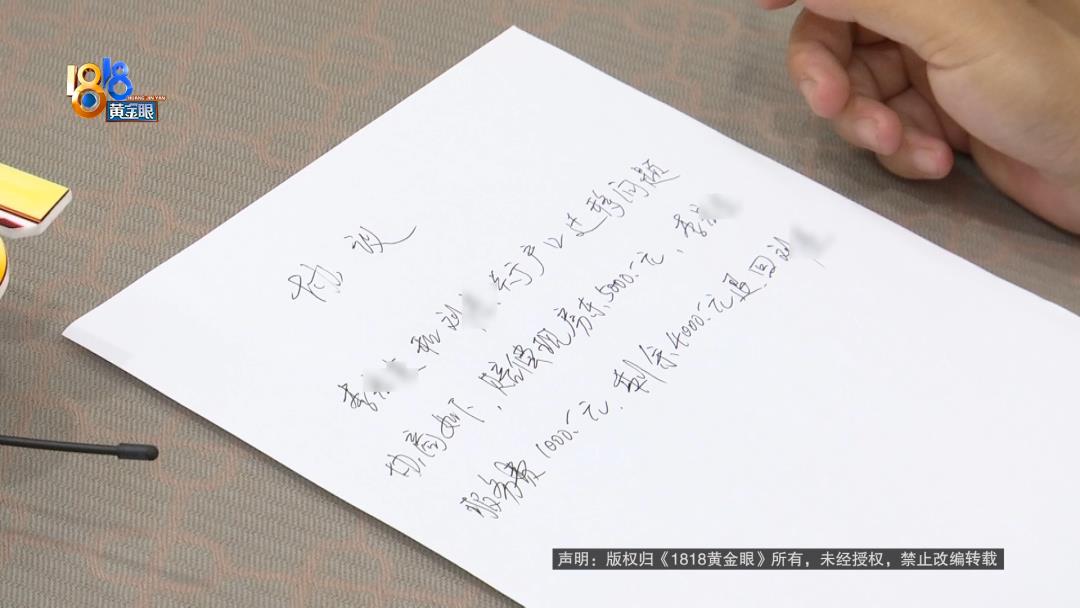 1818
HUANG JIN YAN
黄金眼
协议
李 和刘 ,关于户口迁移问题
协商如下,赔偿现房东5000元,李
服务费1000元,剩余4000元退回刘
声明：版权归《1818黄金眼》所有，未经授权，禁止改编转载